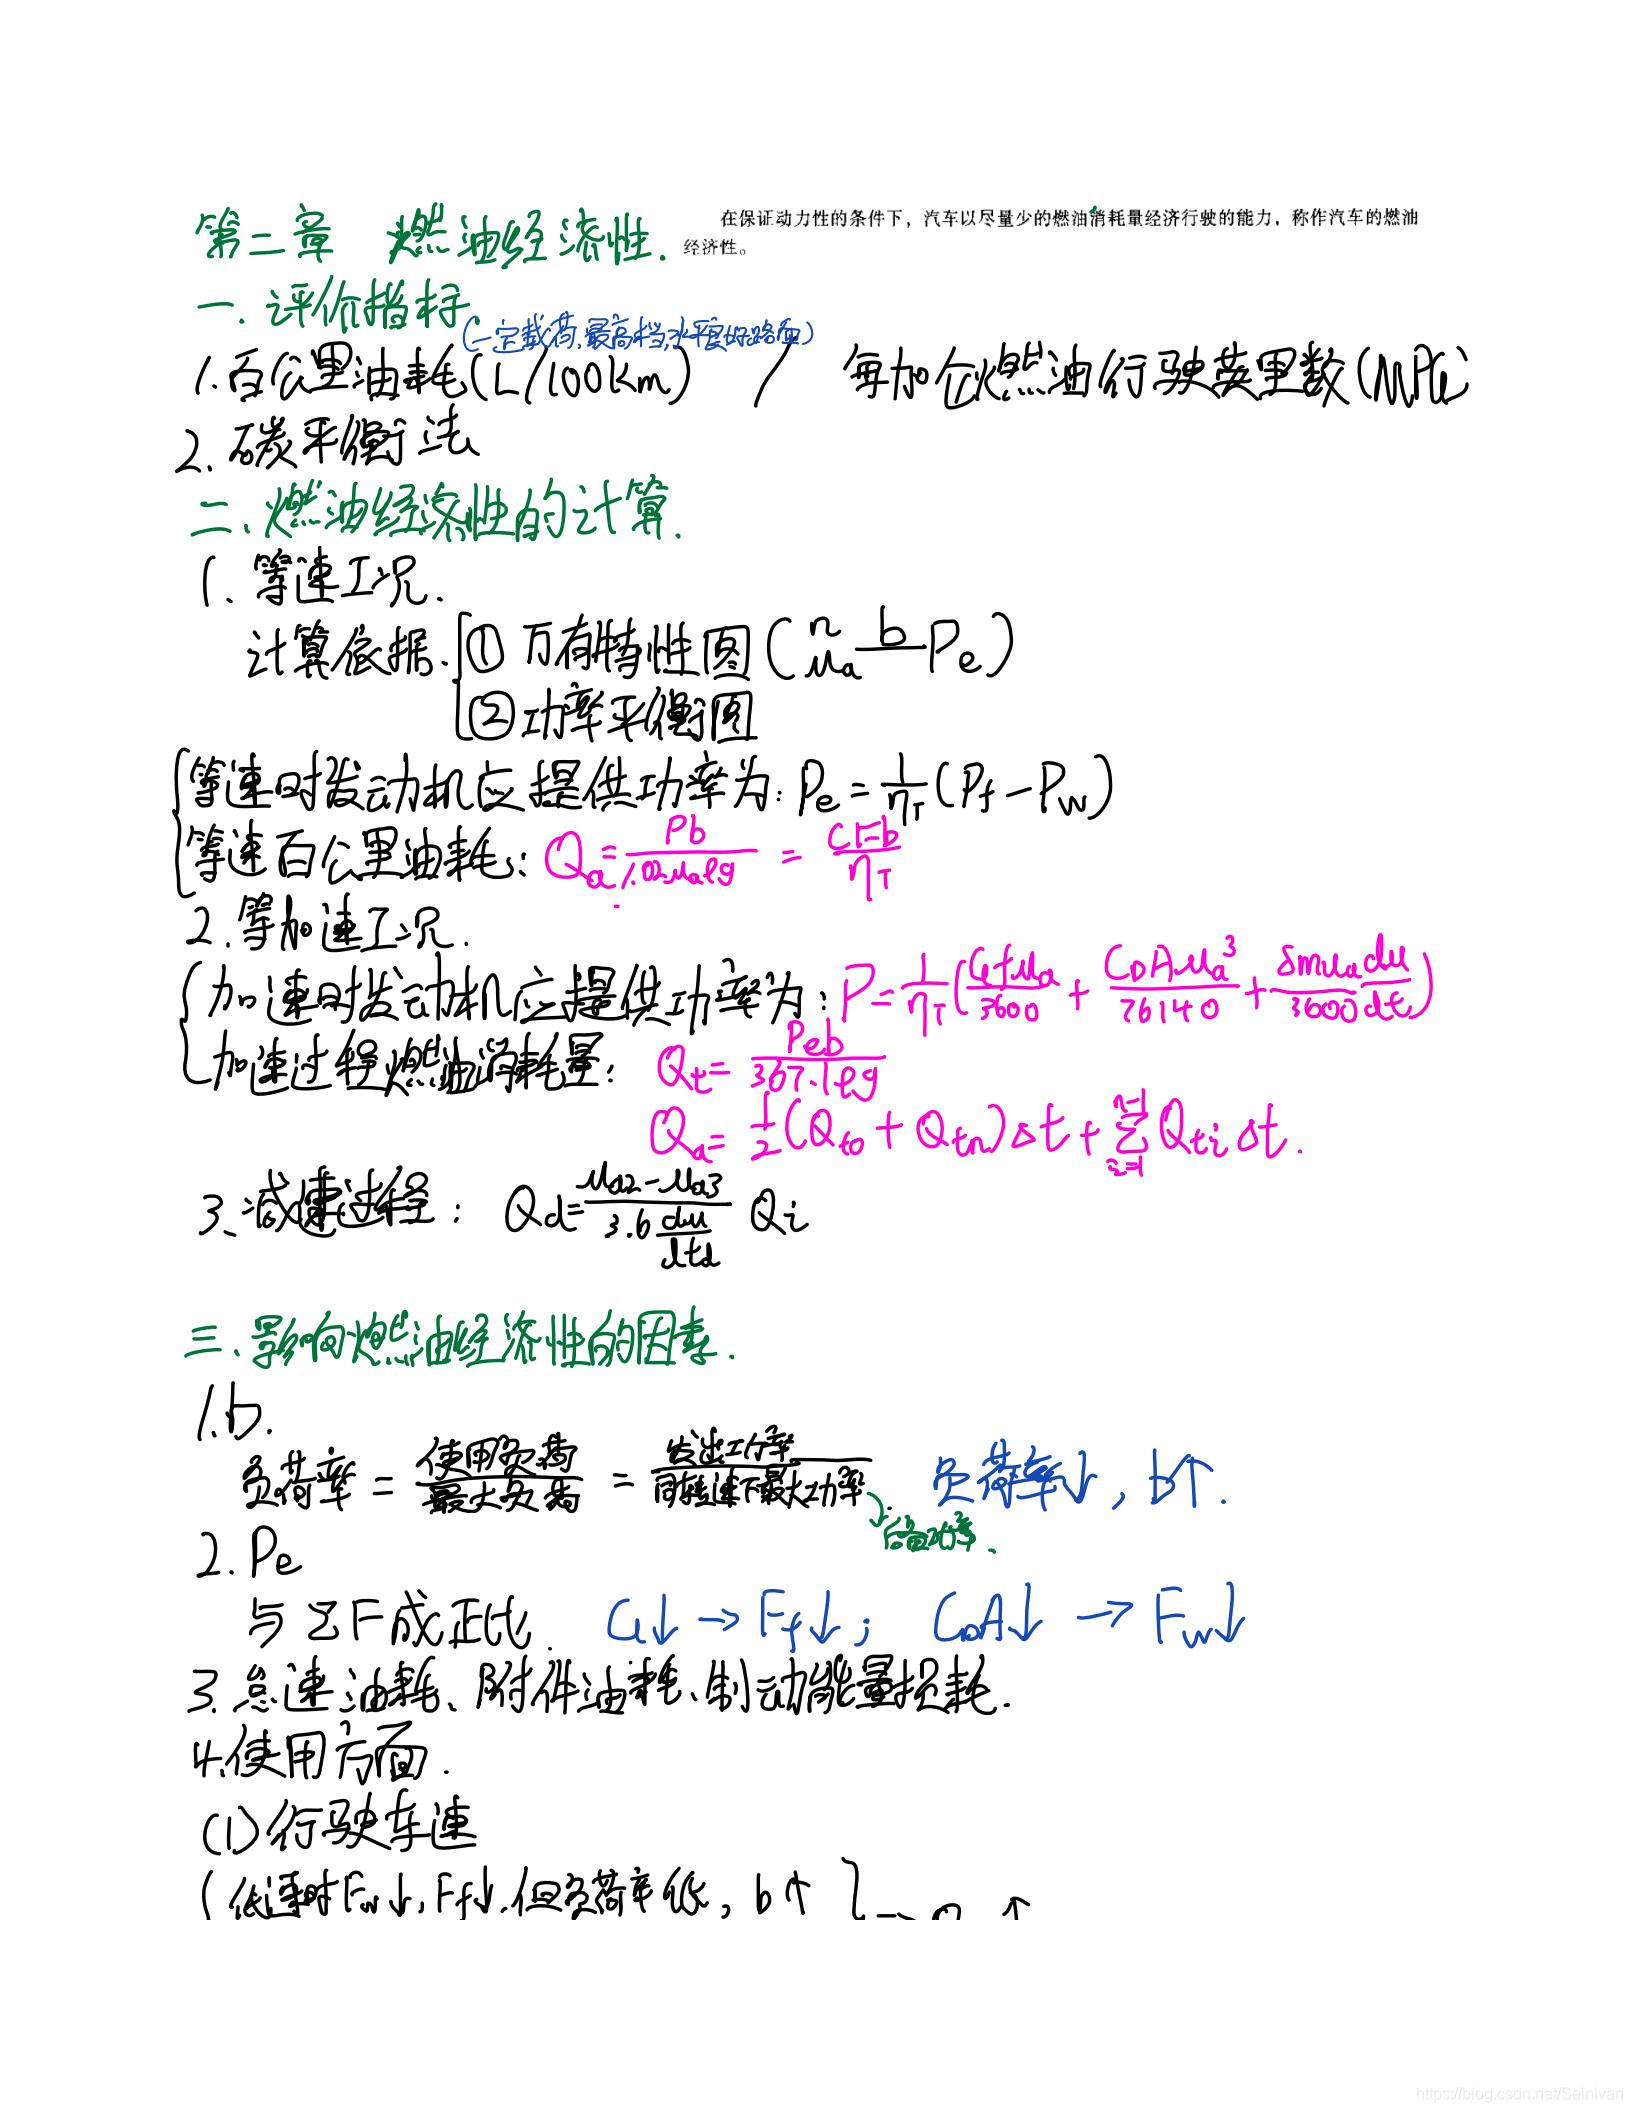 第二章 燃油经济性. 在保证动力性的条件下，汽车以尽量少的燃油消耗量经济行驶的能力，称作汽车的燃油
经济性。
一. 评价指标.
(一定载荷,最高档,水平良好路面)
1.百公里油耗(L/100km) / 每加仑燃油行驶英里数(MPG)
2.碳平衡法
二.燃油经济性的计算.
1.等速工况.
计算依据.{①万有特性图(n ua —b— Pe)
②功率平衡图
{等速时发动机应提供功率为: Pe = 1/ηT (Pf - Pw)
等速百公里油耗: Qa = Pb/1.02uaρg = CFb/ηT
2.等加速工况.
{加速时发动机应提供功率为: P = 1/ηT (Gfua/3600 + CDAua³/76140 + δmua/3600 du/dt)
加速过程燃油消耗量: Qt = Peb/367.1ρg
Qa = 1/2 (Qt0 + Qtn)Δt + Σ_{i=1}^{n-1} Qti Δt.
3.减速过程: Qd = (ua2 - ua3)/(3.6 du/dtd) Qi
三.影响燃油经济性的因素.
1.b.
负荷率 = 使用负荷/最大负荷 = 发出功率/同转速下最大功率. 负荷率↓, b↑.
后备功率.
2.Pe
与ΣF成正比. G↓ → Ff↓; CDA↓ → Fw↓
3.怠速油耗、附件油耗、制动能量损耗.
4.使用方面.
(1)行驶车速
{低速时Fw↓,Ff↓.但负荷率低, b↑}
https://blog.csdn.net/SeinIvan